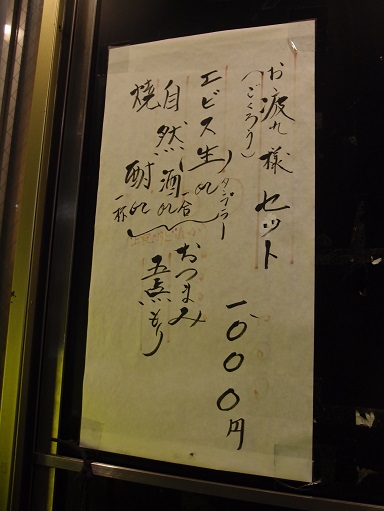 お疲れ様セット
(ごくろう)
一、〇〇〇円
エビス生 or
タンブラー
自然酒 or
一合
焼酎 or
一杯
おつまみ
五点もり